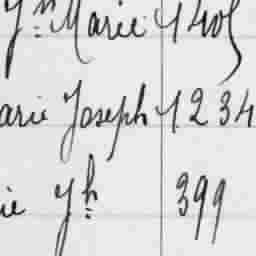 Jⁿ Marie
arie Joseph 1234
ie Jh 399